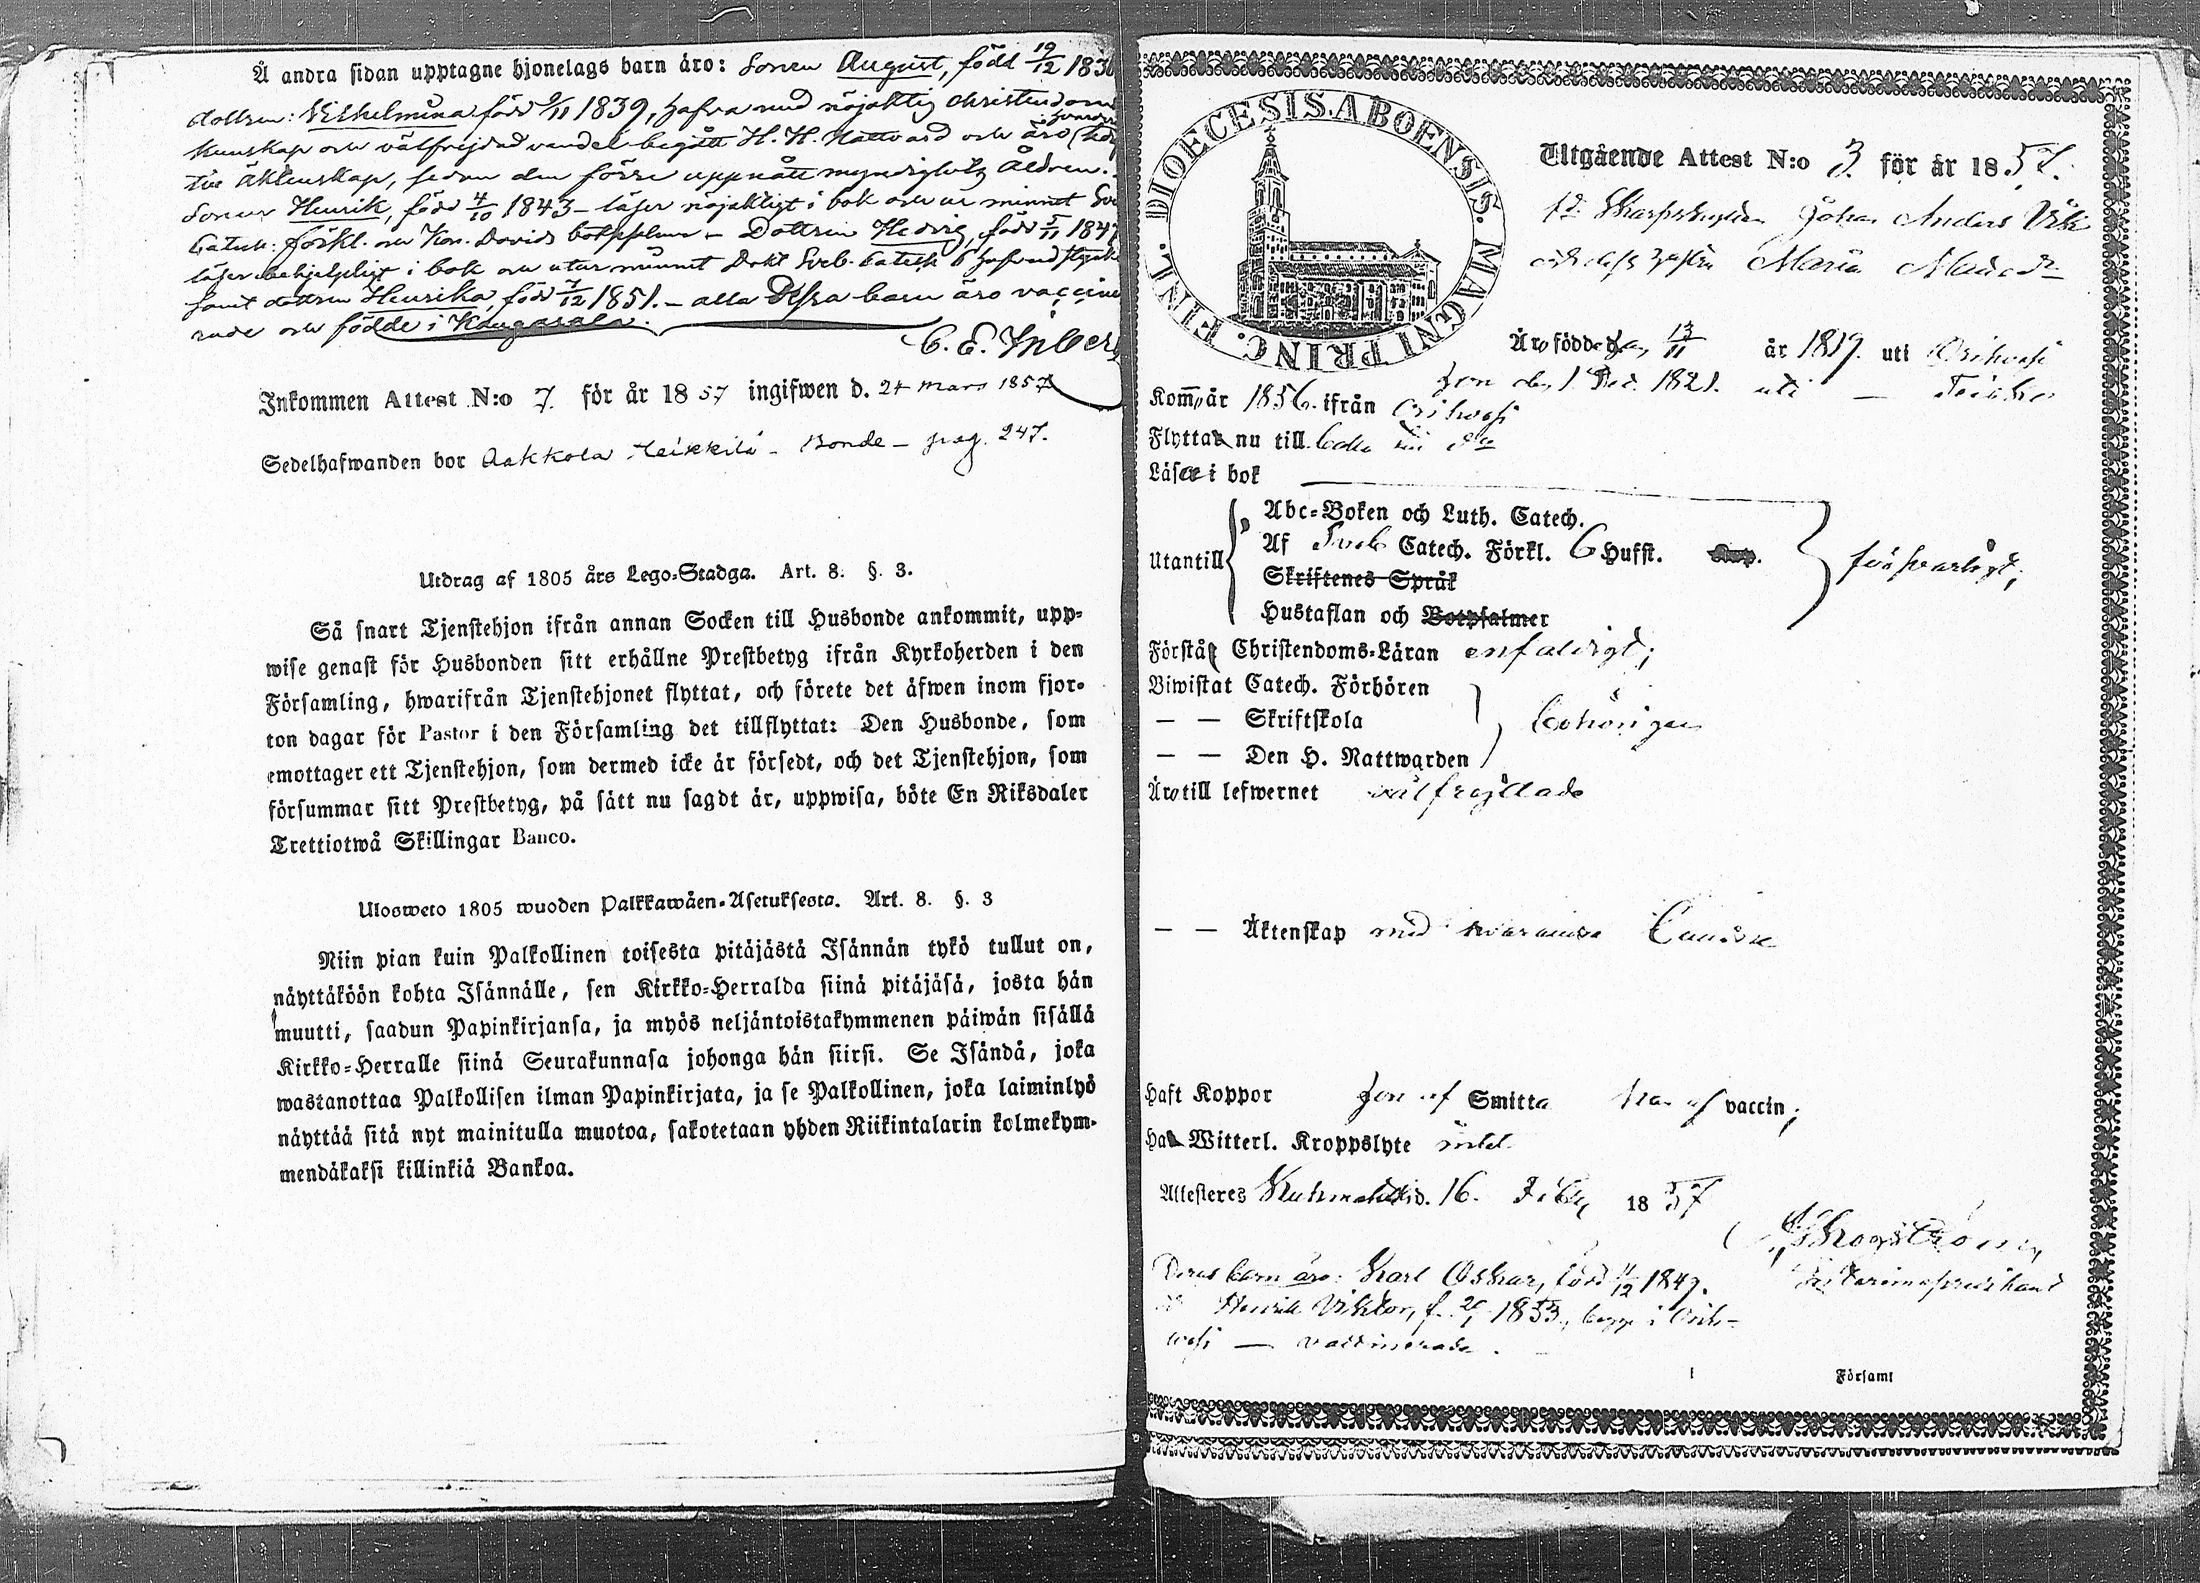 Å andra sidan upptagne hjonelags barn äro: Sonen August, född 19/12 183
dottren: Wilhelmina född 9/11 1839, hafva med nöjaktig Christendoms
kunskap och välfrejdad vandel begått H. H. Nattvard och äro
till Äktenskap, sedan den förre uppnått myndighets Åldren.
Sonen Henrik, född 4/10 1843 – läser nöjaktigt i bok och ur minnet
Catech: förkl. och Kon. Davids botpsalmer – Dottren Hedvig, född 5/11 184
läser behjelpligt i bok och utur minnet Sveb. Catech 6 hufvudstycken
samt dottren Henrika, född 7/12 1851. – alla Dessa barn äro vaccine
rade och födde i Kangasala.
C. E. Inberg
Inkommen Attest N:o 7. för år 1857 ingifwen d. 24 mars 1857
Sedelhafwanden bor Aakkola Heikkilä – Bonde – pag. 247.
Utdrag af 1805 års Lego-Stadga. Art. 8. §. 3.
Så snart Tjenstehjon ifrån annan Socken till Husbonde ankommit, upp-
wise genast för Husbonden sitt erhållne Prestbetyg ifrån Kyrkoherden i den
Församling, hwarifrån Tjenstehjonet flyttat, och förete det äfwen inom fjor-
ton dagar för Pastor i den Församling det tillflyttat: Den Husbonde, som
emottager ett Tjenstehjon, som dermed icke är försedt, och det Tjenstehjon, som
försummar sitt Prestbetyg, på sätt nu sagdt är, uppwisa, böte En Riksdaler
Trettiotwå Skillingar Banco.
Ulosweto 1805 wuoden Palkkawäen-Asetuksesta. Art. 8. §. 3
Niin pian kuin Palkollinen toisesta pitäjästä Isännän tykö tullut on,
näyttäköön kohta Isännälle, sen Kirkko-Herralda siinä pitäjäsä, josta hän
muutti, saadun Papinkirjansa, ja myös neljäntoistakymmenen päiwän sisällä
Kirkko-Herralle siinä Seurakunnasa johonga hän siirsi. Se Isändä, joka
wastanottaa Palkollisen ilman Papinkirjata, ja se Palkollinen, joka laiminlyö
näyttää sitä nyt mainitulla muotoa, sakotetaan yhden Riikintalarin kolmekym-
mendäkaksi killinkiä Bankoa.
DIOECESIS. ABOENSIS. MAGNI PRINC. FINL.
Utgående Attest N:o 3. för år 1857.
f.d. Skarpskytten Johan Anders Vik
och dess hustru Maria
Äro födde han 13/11 år 1819. uti Orihvesi
hon den 1 Dec. 1821. uti –
Komm. år 1856. ifrån Orihvesi
Flytta nu till
Läsa i bok
Abc-Boken och Luth. Catech.
Utantill Af Sveb Catech. Förkl. 6 Hufst. försvarligt;
Skriftenes Språk
Hustaflan och Botpsalmer
Förstå Christendoms-Läran enfaldigt;
Biwistat Catech. Förhören
— — Skriftskola behörigen
— — Den H. Nattwarden
Äro till lefwernet välfrejdade
— — Äktenskap med hvarandra
Haft Koppor hon af Smitta han af vaccin;
Ha Witterl. Kroppslyte intet
Attesteras Kuhmalaht d. 16. Febr. 1857
Skogström
Deras barn äro: Karl Oskar, född 11/12 1849.
Henrik Viktor, f. 1853, begge i Orih-
vesi — vaccinerade.
Församl